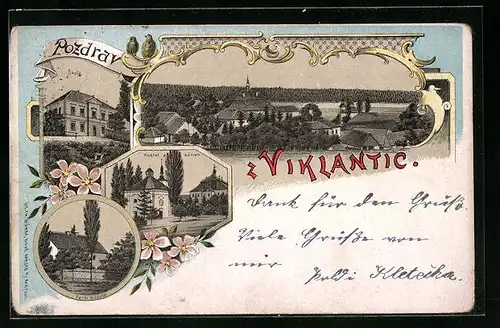 Pozdrav
Škola
Kostel
z VIKLANTIC.
Dank für den Gruß.
Viele Grüße von
mir Poldi Kletečka.